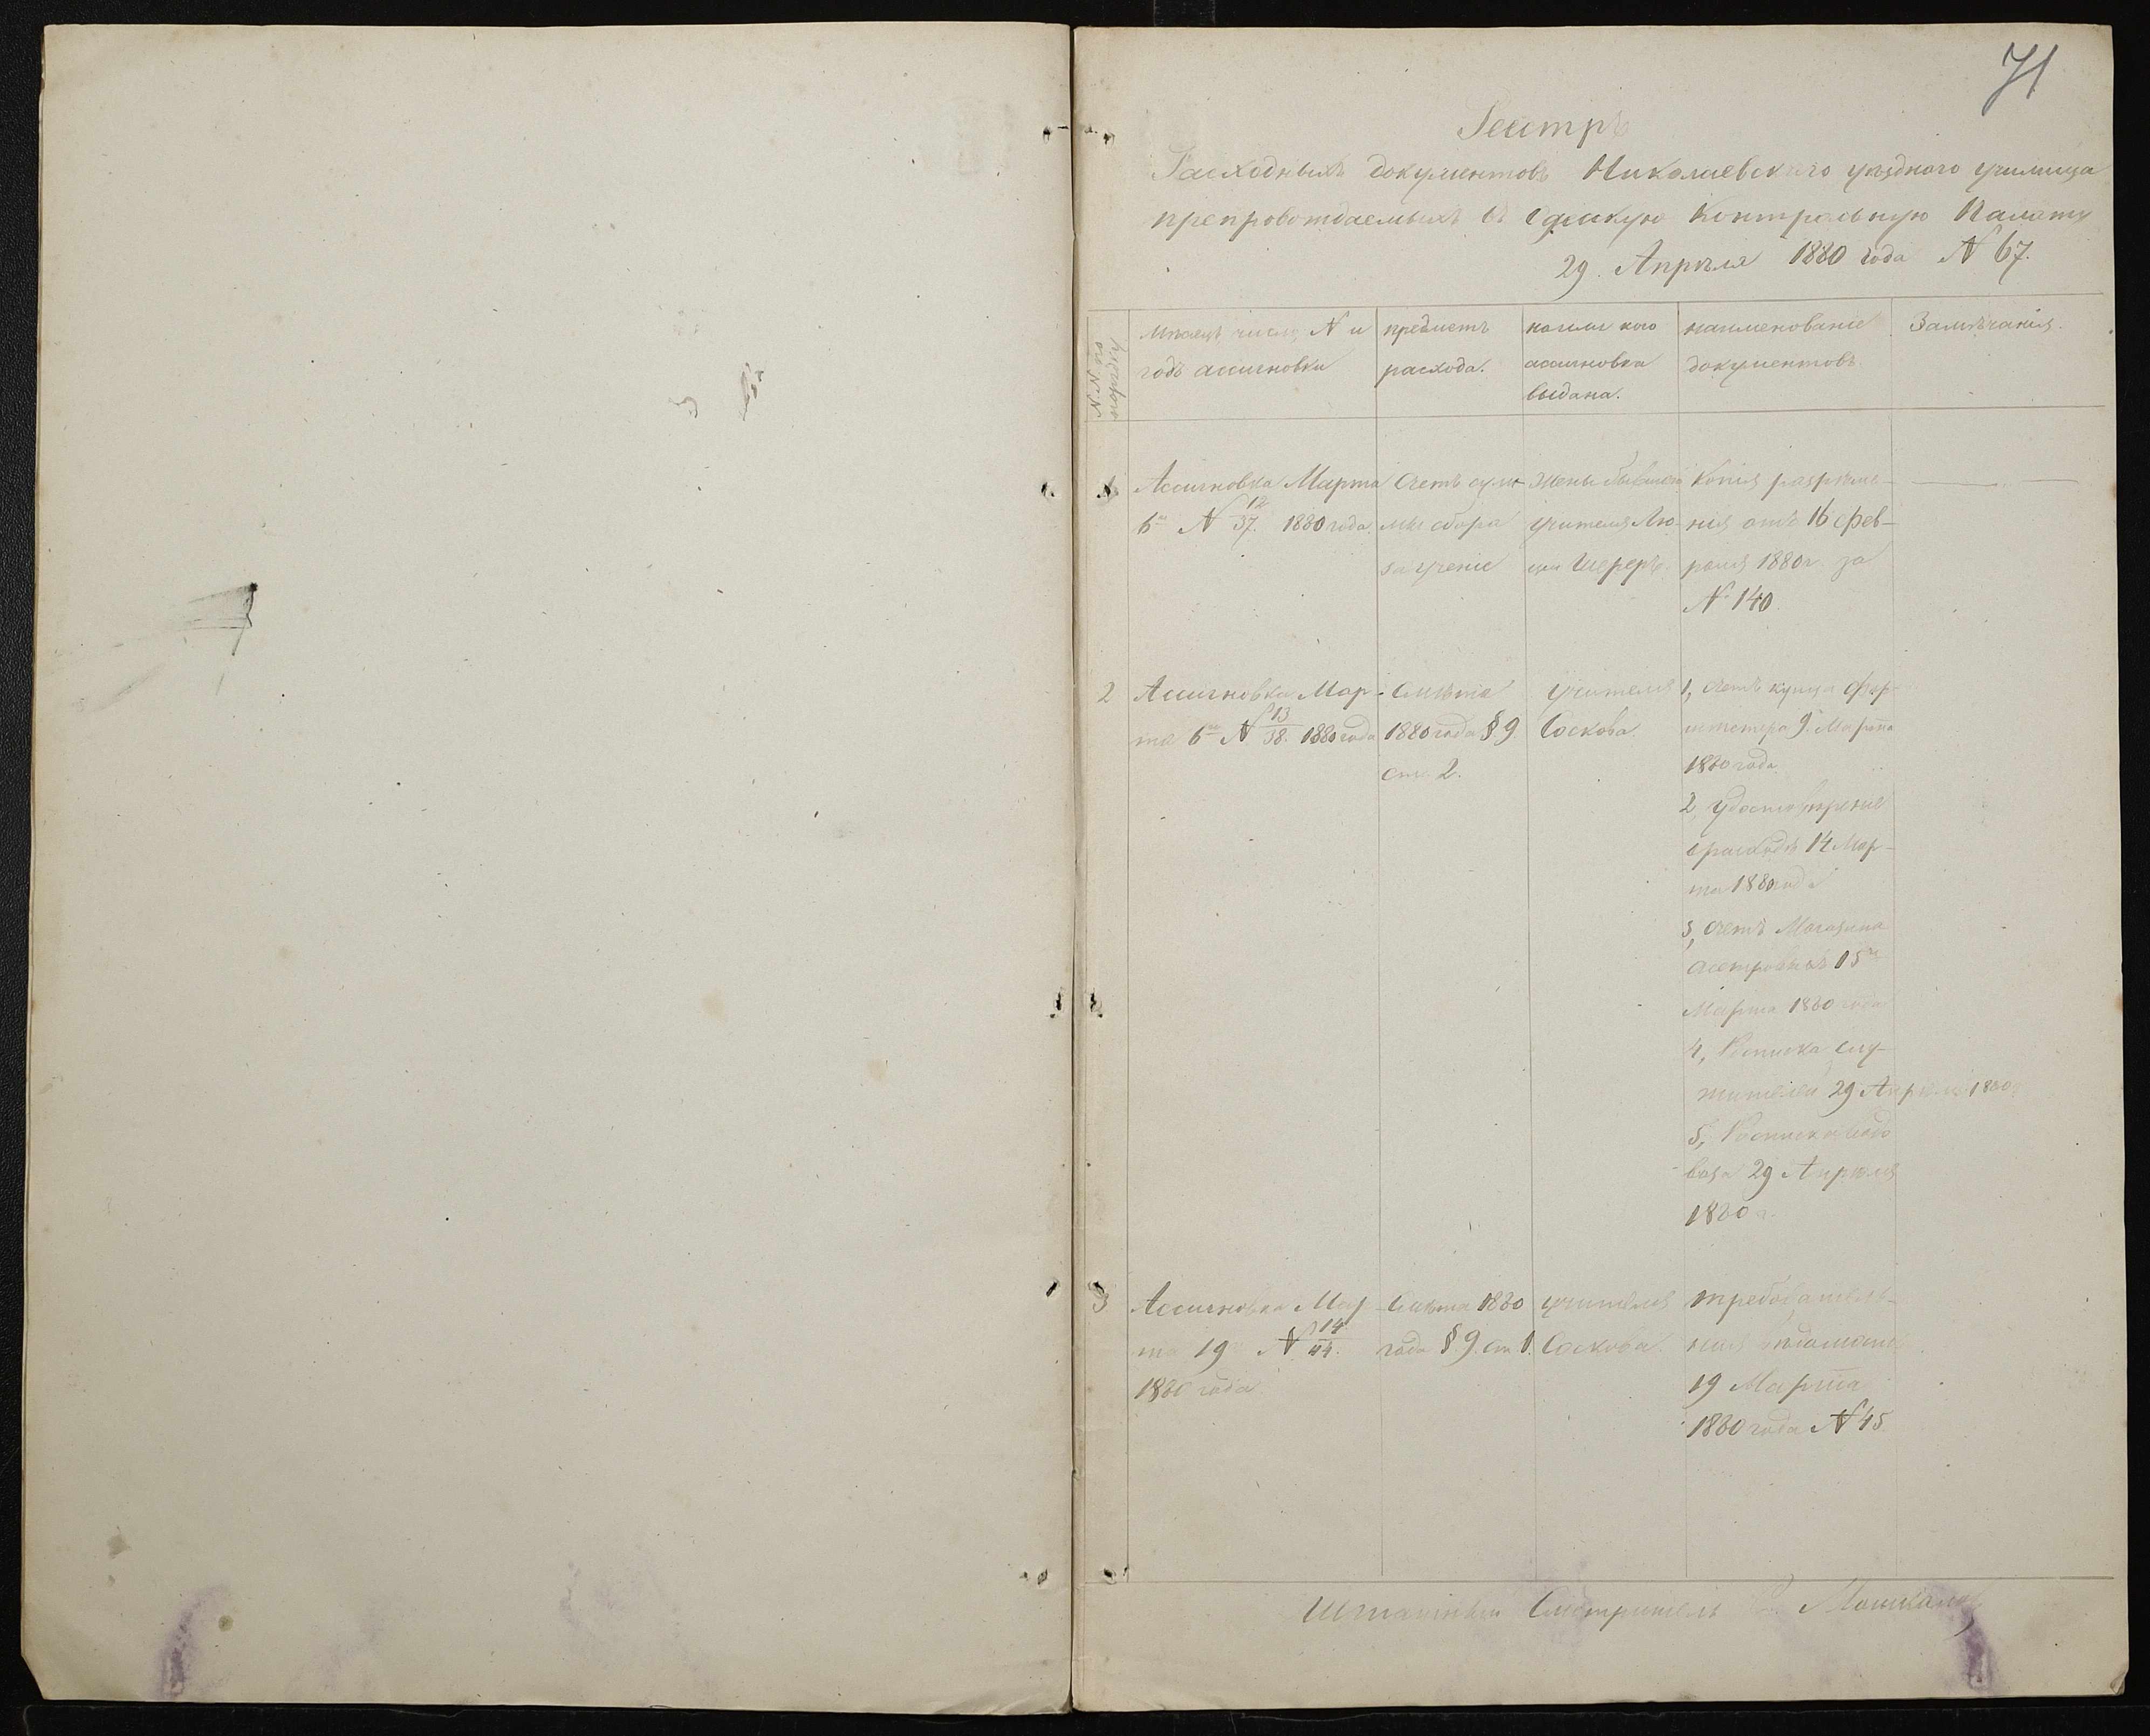 71
Реестръ
Расходныхъ документовъ Николаевскаго уѣзднаго училища
препровождаемыхъ въ Одескую Контрольную Палату
29. Апрѣля 1880 года N 67.
N.N. по порядку
Мѣсяцъ, число, N и годъ ассигновки
предметъ расхода.
на чье имя ассигновка выдана.
наименованіе документовъ.
Замѣчанія.
1
Ассигновка Марта
6го N 12/37. 1880 года.
Счетъ сум-
мы сбора
за ученіе
жены бывшаго
учителя Лю-
Шереръ.
Копія разрѣше-
нія отъ 16 фев-
раля 1880 г. за
N 140.
2
Ассигновка Мар-
та 6го N 13/38. 1880 года
Смѣта
1880 года § 9
ст. 2.
учителя
Соскова.
1, Счетъ купца Фор-
штетера 9 Марта
1880 года
2, Удостовѣреніе
о расходѣ 14 Мар-
та 1880 года
3, Счетъ Магазина
15го
Марта 1880 года
4, Росписка слу-
жителей 29 Апрѣля 1880 г.
5, Росписка водо-
воза 29 Апрѣля
1880 г.
3
Ассигновка Мар-
та 19 N 14/44.
1880 года.
Смѣта 1880
года § 9. ст 1.
учителя
Соскова.
требователь-
ная вѣдомость
19 Марта
1880 года N 45
Штатный Смотритель